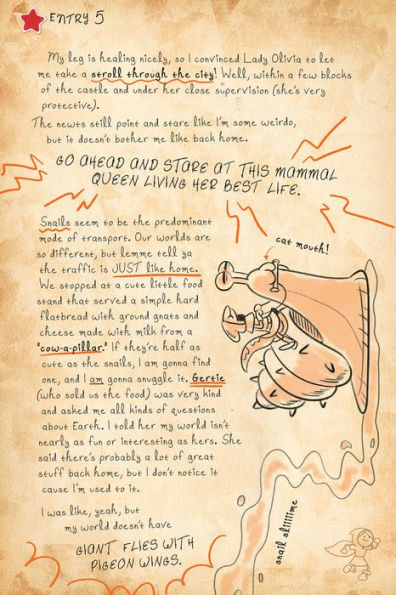 ENTRY 5
My leg is healing nicely, so I convinced Lady Olivia to let
me take a stroll through the city! Well, within a few blocks
of the castle and under her close supervision (she's very
protective).
The newts still point and stare like I'm some weirdo,
but it doesn't bother me like back home.
GO AHEAD AND STARE AT THIS MAMMAL
QUEEN LIVING HER BEST LIFE.
Snails seem to be the predominant
mode of transport. Our worlds are
so different, but lemme tell ya
the traffic is JUST like home.
We stopped at a cute little food
stand that served a simple hard
flatbread with ground gnats and
cheese made with milk from a
"cow-a-pillar." If they're half as
cute as the snails, I am gonna find
one, and I am gonna snuggle it. Gertie
(who sold us the food) was very kind
and asked me all kinds of questions
about Earth. I told her my world isn't
nearly as fun or interesting as hers. She
said there's probably a lot of great
stuff back home, but I don't notice it
cause I'm used to it.
I was like, yeah, but
my world doesn't have
GIANT FLIES WITH
PIGEON WINGS.
cat mouth!
snail sliiiime